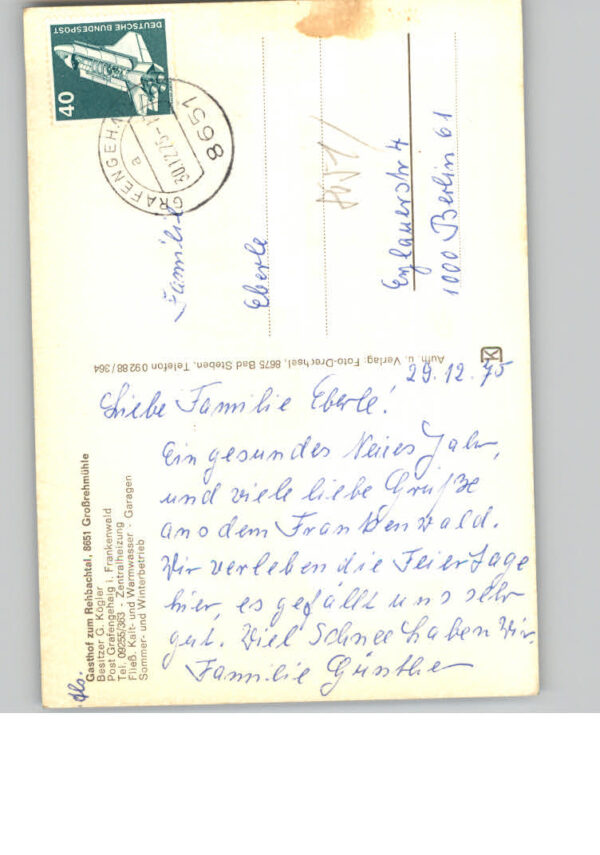 DEUTSCHE BUNDESPOST
40
GRAFENGEH
a
30.12.75-1
8651
Familie
Eberle
8651/
Eylauerstr 4
1000 Berlin 61
Aufn. u. Verlag: Foto-Drechsel, 8675 Bad Steben, Telefon 0 92 88 / 364
Gasthof zum Rehbachtal, 8651 Großrehmühle
Besitzer G. Kögler
Post Grafengehaig i. Frankenwald
Tel. 09255/363 - Zentralheizung
Fließ. Kalt- und Warmwasser - Garagen
Sommer- und Winterbetrieb
Abs.
29.12.75
Liebe Familie Eberle!
Ein gesundes Neues Jahr,
und viele liebe Grüße
aus dem Frankenwald.
Wir verleben die Feiertage
hier, es gefällt uns sehr
gut. Viel Schnee haben Wir.
Familie Günther